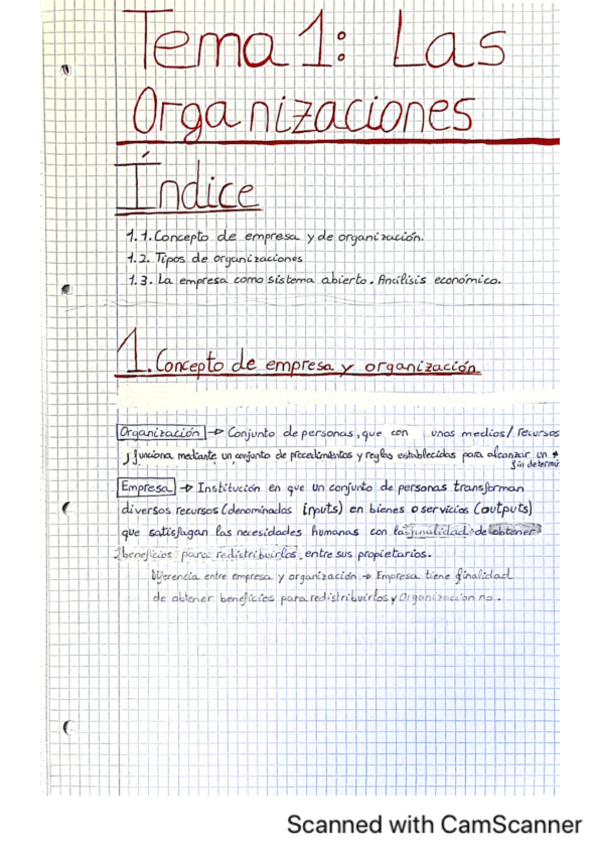 Tema 1: Las
Organizaciones
Índice
1.1. Concepto de empresa y de organización.
1.2. Tipos de organizaciones
1.3. La empresa como sistema abierto. Análisis económico.
1. Concepto de empresa y organización
Organización → Conjunto de personas, que con unos medios/recursos
y funciona mediante un conjunto de procedimientos y reglas establecidas para alcanzar un
fin determi
Empresa → Institución en que un conjunto de personas transforman
diversos recursos (denominados inputs) en bienes o servicios (outputs)
que satisfagan las necesidades humanas con la finalidad de obtener
beneficios para redistribuirlos entre sus propietarios.
Diferencia entre empresa y organización → Empresa tiene finalidad
de obtener beneficios para redistribuirlos y Organización no.
Scanned with CamScanner